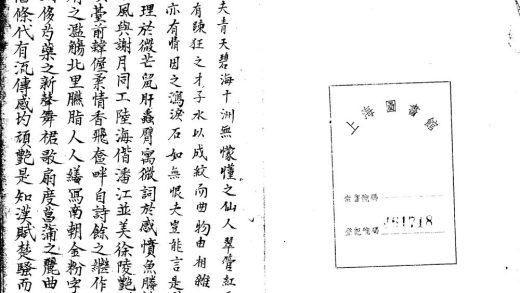 上海圖書館
索書號碼
登記號碼
夫青天碧海十洲無懞懂之仙人翠管紅
有踈狂之才子水以成紋而曲物由相
亦有情因之淚石如無恨夫豈能言是
理於微芒鼠肝蟲臂寓微詞於感憤魚
風與謝月同工陸海偕潘江並美徐陵艷
臺前韓偓柔情香飛奩畔自詩餘之繼作
之濫觴北里臙脂人人繕寫南朝金粉字
侈芍藥之新聲舞裙歌扇度菖蒲之麗曲
條代有流傳感均頑艷是知漢賦楚騷而